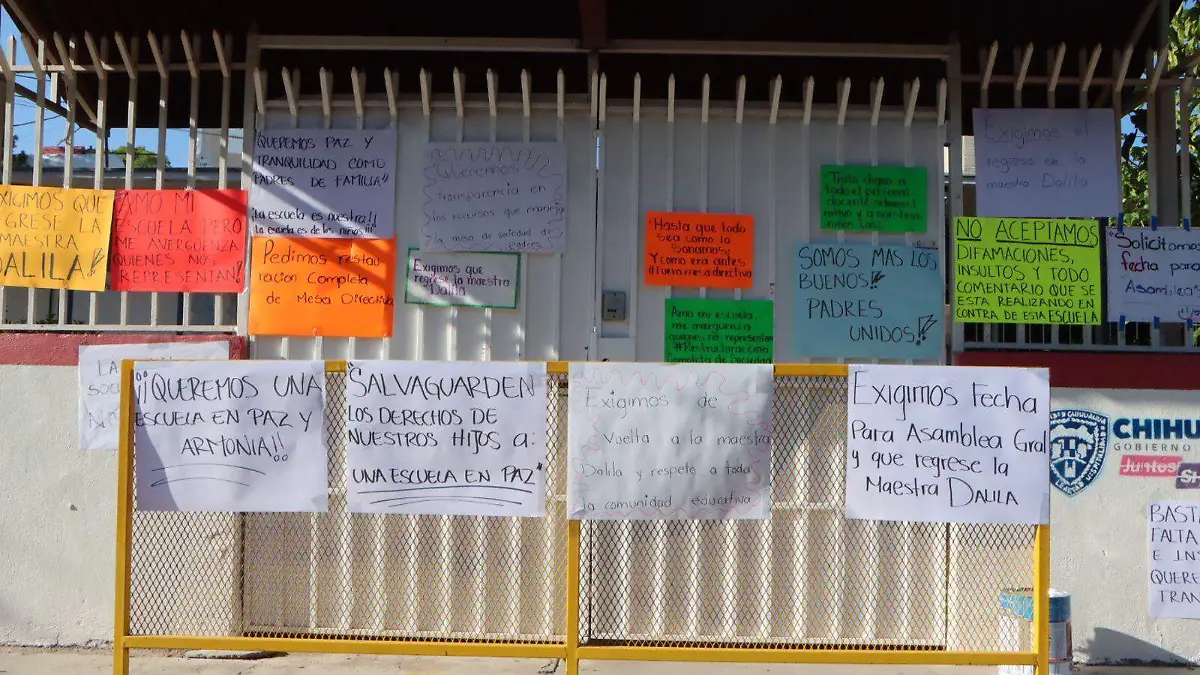 EXIGIMOS QUE
REGRESE LA
MAESTRA
DALILA!!
AMO MI
ESCUELA PERO
ME AVERGÜENZA
QUIENES NOS
REPRESENTAN!
QUEREMOS PAZ Y
TRANQUILIDAD COMO
PADRES DE FAMILIA!!
¡la escuela es nuestra!!
¡La escuela es de los niños!!!
Pedimos restau-
ración Completa
de Mesa Directiva
Queremos
Transparencia en
los recursos que maneja
la mesa de sociedad de
Padres
Exigimos que
regrese la maestra
Dalila
"Hasta que todo
sea como lo
Sonamos!
Y como era antes
#fuera mesa directiva
Trato digno a
todo el personal
docente actual
y a nuestros
Amo mi escuela,
me avergüenza
quienes no representan
#Restructuracion
Completa de Sociedad
SOMOS MAS LOS
BUENOS!!
PADRES
UNIDOS!
Exigimos el
regreso de la
maestra Dalila
NO ACEPTAMOS
DIFAMACIONES,
INSULTOS Y TODO
COMENTARIO QUE SE
ESTA REALIZANDO EN
CONTRA DE ESTA ESCUELA
Solicitamos
fecha para
Asamblea"
LA
SO
N
¡¡QUEREMOS UNA
ESCUELA EN PAZ Y
ARMONIA!!
"SALVAGUARDEN
LOS DERECHOS DE
NUESTROS HIJOS A:
UNA ESCUELA EN PAZ"
Exigimos de
Vuelta a la maestra
Dalila y respeto a toda
la comunidad educativa
Exigimos Fecha
Para Asamblea Gral
y que regrese la
Maestra DALILA
CHIHU
GOBIERNO
Juntos
Sí
BASTA
FALTA
E INS
QUERE
TRAN